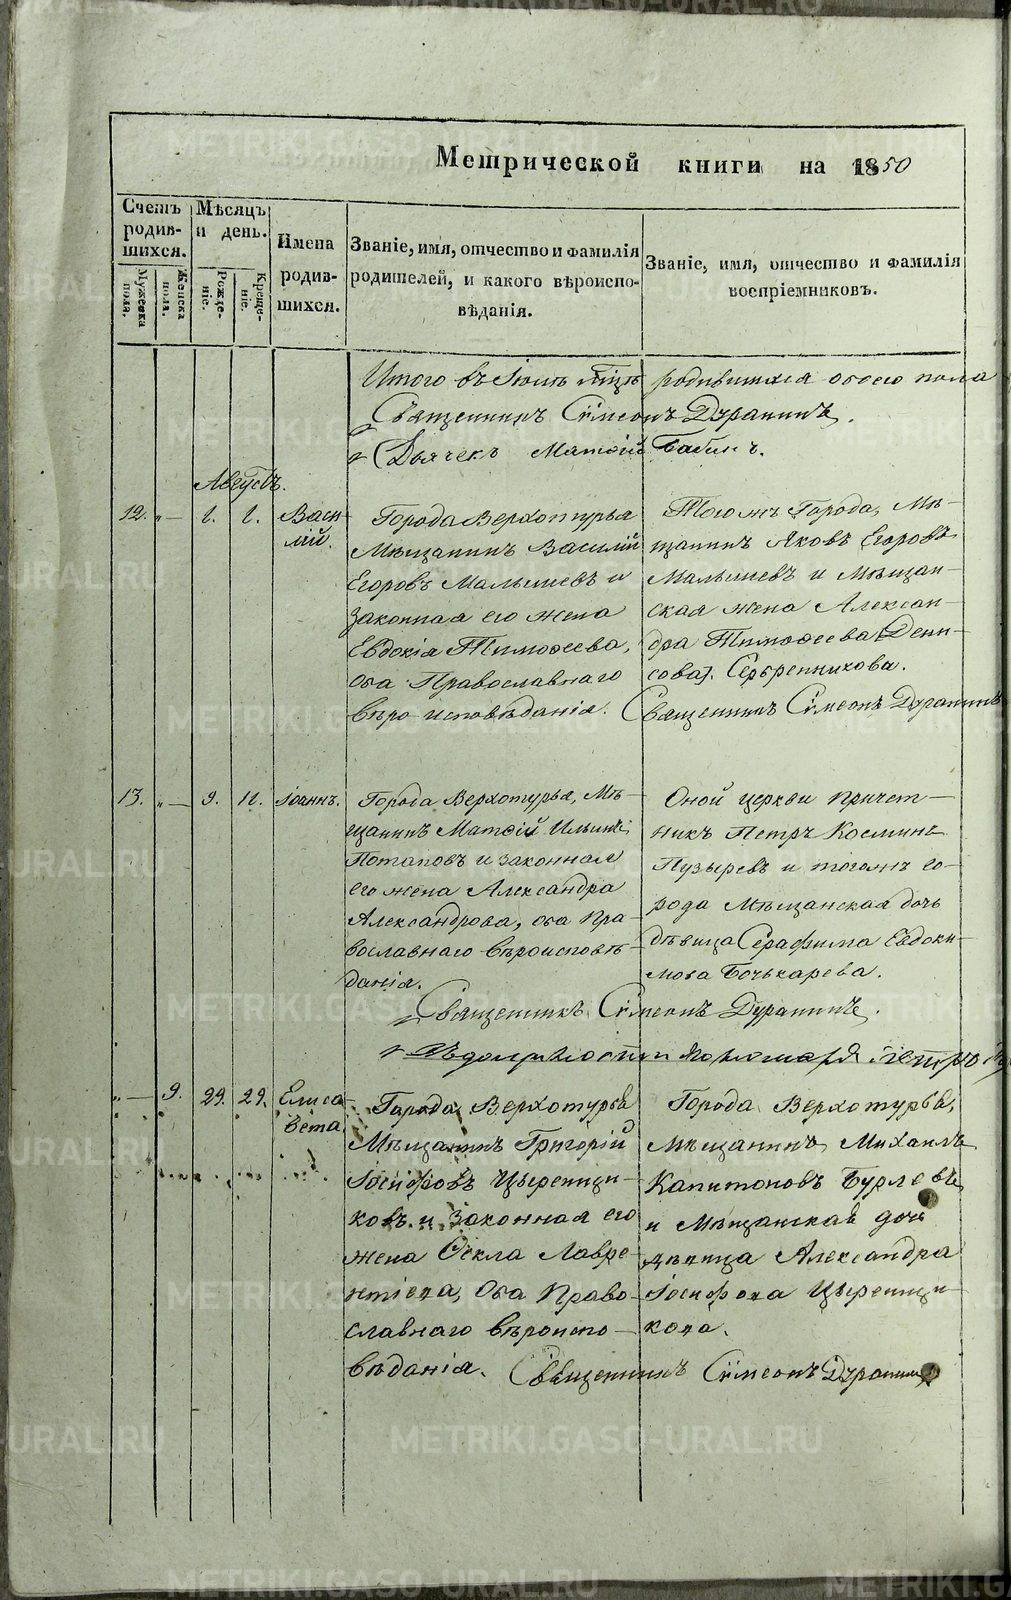 Метрической книги на 1850
Счетъ родив-шихся.
Мужеска пола.
Женска пола.
Мѣсяцъ и день.
Рожде-ніе.
Креще-ніе.
Имена родив-шихся.
Званіе, имя, отчество и фамилія родителей, и какого вѣроиспо-вѣданія.
Званіе, имя, отчество и фамилія воспріемниковъ.
Итого въ Іюлѣ мцѣ родившихся обоего пола
Священникъ Сѵмеонъ Дуранинъ.
Дьячекъ Матөій Бабинъ.
Августъ.
12. „ — 1. 1. Васи-
лій.
Города Верхотурья
Мѣщанинъ Василій
Егоровъ Малышевъ и
законная его жена
Евдокія Тимоѳеева,
оба Православнаго
вѣро исповѣданія.
Тогожъ Города, Мѣ-
щанинъ Яковъ Егоровъ
Малышевъ и Мѣщан-
ская жена Алексан-
дра Тимоѳеева (Дени-
сова). Серебренникова.
Священникъ Сѵмеонъ Дуранинъ
13. „ — 9. 11. Іоаннъ.
Города Верхотурья, Мѣ-
щанинъ Матѳій Ильинъ
Потаповъ и законная
его жена Александра
Александрова, оба Пра-
вославнаго вѣроисповѣ-
данія.
Оной церкви Причет-
никъ Петръ Космины
Пузыревъ и тогожъ го-
рода Мѣщанская дочь
дѣвица Серафима Евдоки-
мова Бочькарева.
Священникъ Сѵмеонъ Дуранинъ.
Въ должности пономаря Петръ
„ — 9. 29. 29. Елиса-
вета.
Города Верхотурья
Мѣщанинъ Григорій
Іосифовъ Цыренщи-
ковъ и законная его
жена Ѳекла Лавре-
нтіева, Оба Право-
славнаго вѣроиспо-
вѣданія.
Города Верхотурья,
мѣщанинъ Михаилъ
Капитоновъ Бурлевъ
и Мѣщанская дочь
дѣвица Александра
Іосифова Цыренщи-
кова.
Священникъ Сѵмеонъ Дуранинъ
METRIKI.GASO-URAL.RU